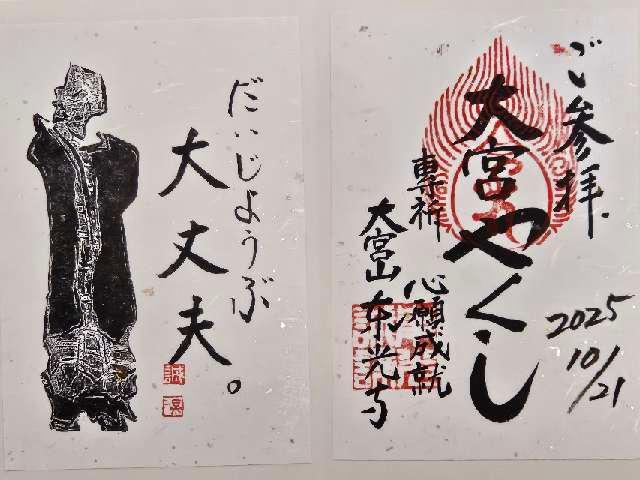 だいじようぶ
大丈夫。
ご参拝
大宮やくし
専祈 心願成就
大宮山東光寺
2025
10/21